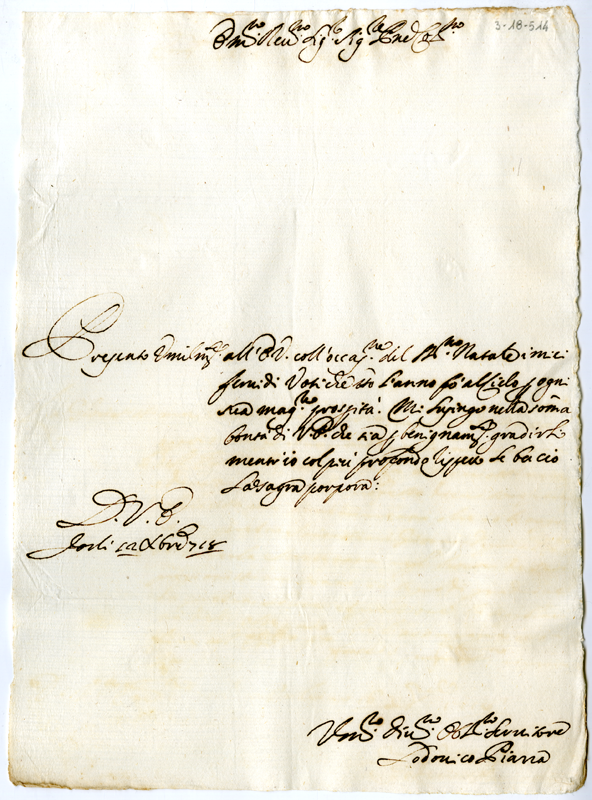 3-18-514
Em.mo Rev.mo Sig.r Sig.r Pne Col.mo
Presento Umilm.te all'E.V. coll'occas.ne del SS.mo Natale i miei
fervidi Voti che tto l'anno fò al Cielo p ogni
sua mag.re prosp.ità. Mi lusingo nella som̃a
bontà di V.E. che sia p benignam.te gradirli
mentr'io col più profondo rispetto le bacio
la sagra porpora:
D. V. E.
Forlì 12 Xbre 718
Um.mo Div.mo Obb.mo Servitore
Lodovico Piazza